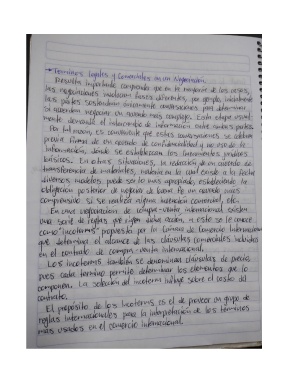 → Términos legales y comerciales en una Negociación.
Resulta importante comprender que en la mayoría de los casos,
las negociaciones involucran fases diferentes, por ejemplo, inicialmente
las partes sostendrán únicamente conversaciones para determinar
si acuerdan negociar un acuerdo más complejo. Esta etapa usual-
mente demanda el intercambio de información entre ambas partes.
Por tal razón, es conveniente que estas conversaciones se celebren
previa firma de un acuerdo de confidencialidad y no uso de la
información, donde se establezcan los lineamientos jurídicos
básicos. En otras situaciones, la redacción de un acuerdo de
transferencia de materiales, mediante en la cual existe a la fecha
diversos modelos, puede ser lo más apropiado, estableciendo la
obligación posterior de negociar de buena fe un acuerdo más
comprensivo si se realiza alguna invención comercial, etc.
En una negociación de compra-venta internacional existen
una serie de reglas que rigen esa acción, a este se le conoce
como "incoterms" propuesto por la Cámara de Comercio Internacional
que determina el alcance de las cláusulas comerciales incluidas
en el contrato de compra-venta internacional.
Los incoterms también se denominan cláusulas de precio,
pues cada término permite determinar los elementos que lo
componen. La selección del incoterm influye sobre el costo del
contrato.
El propósito de los Incoterms es el de proveer un grupo de
reglas internacionales para la interpretación de los términos
más usados en el comercio internacional.